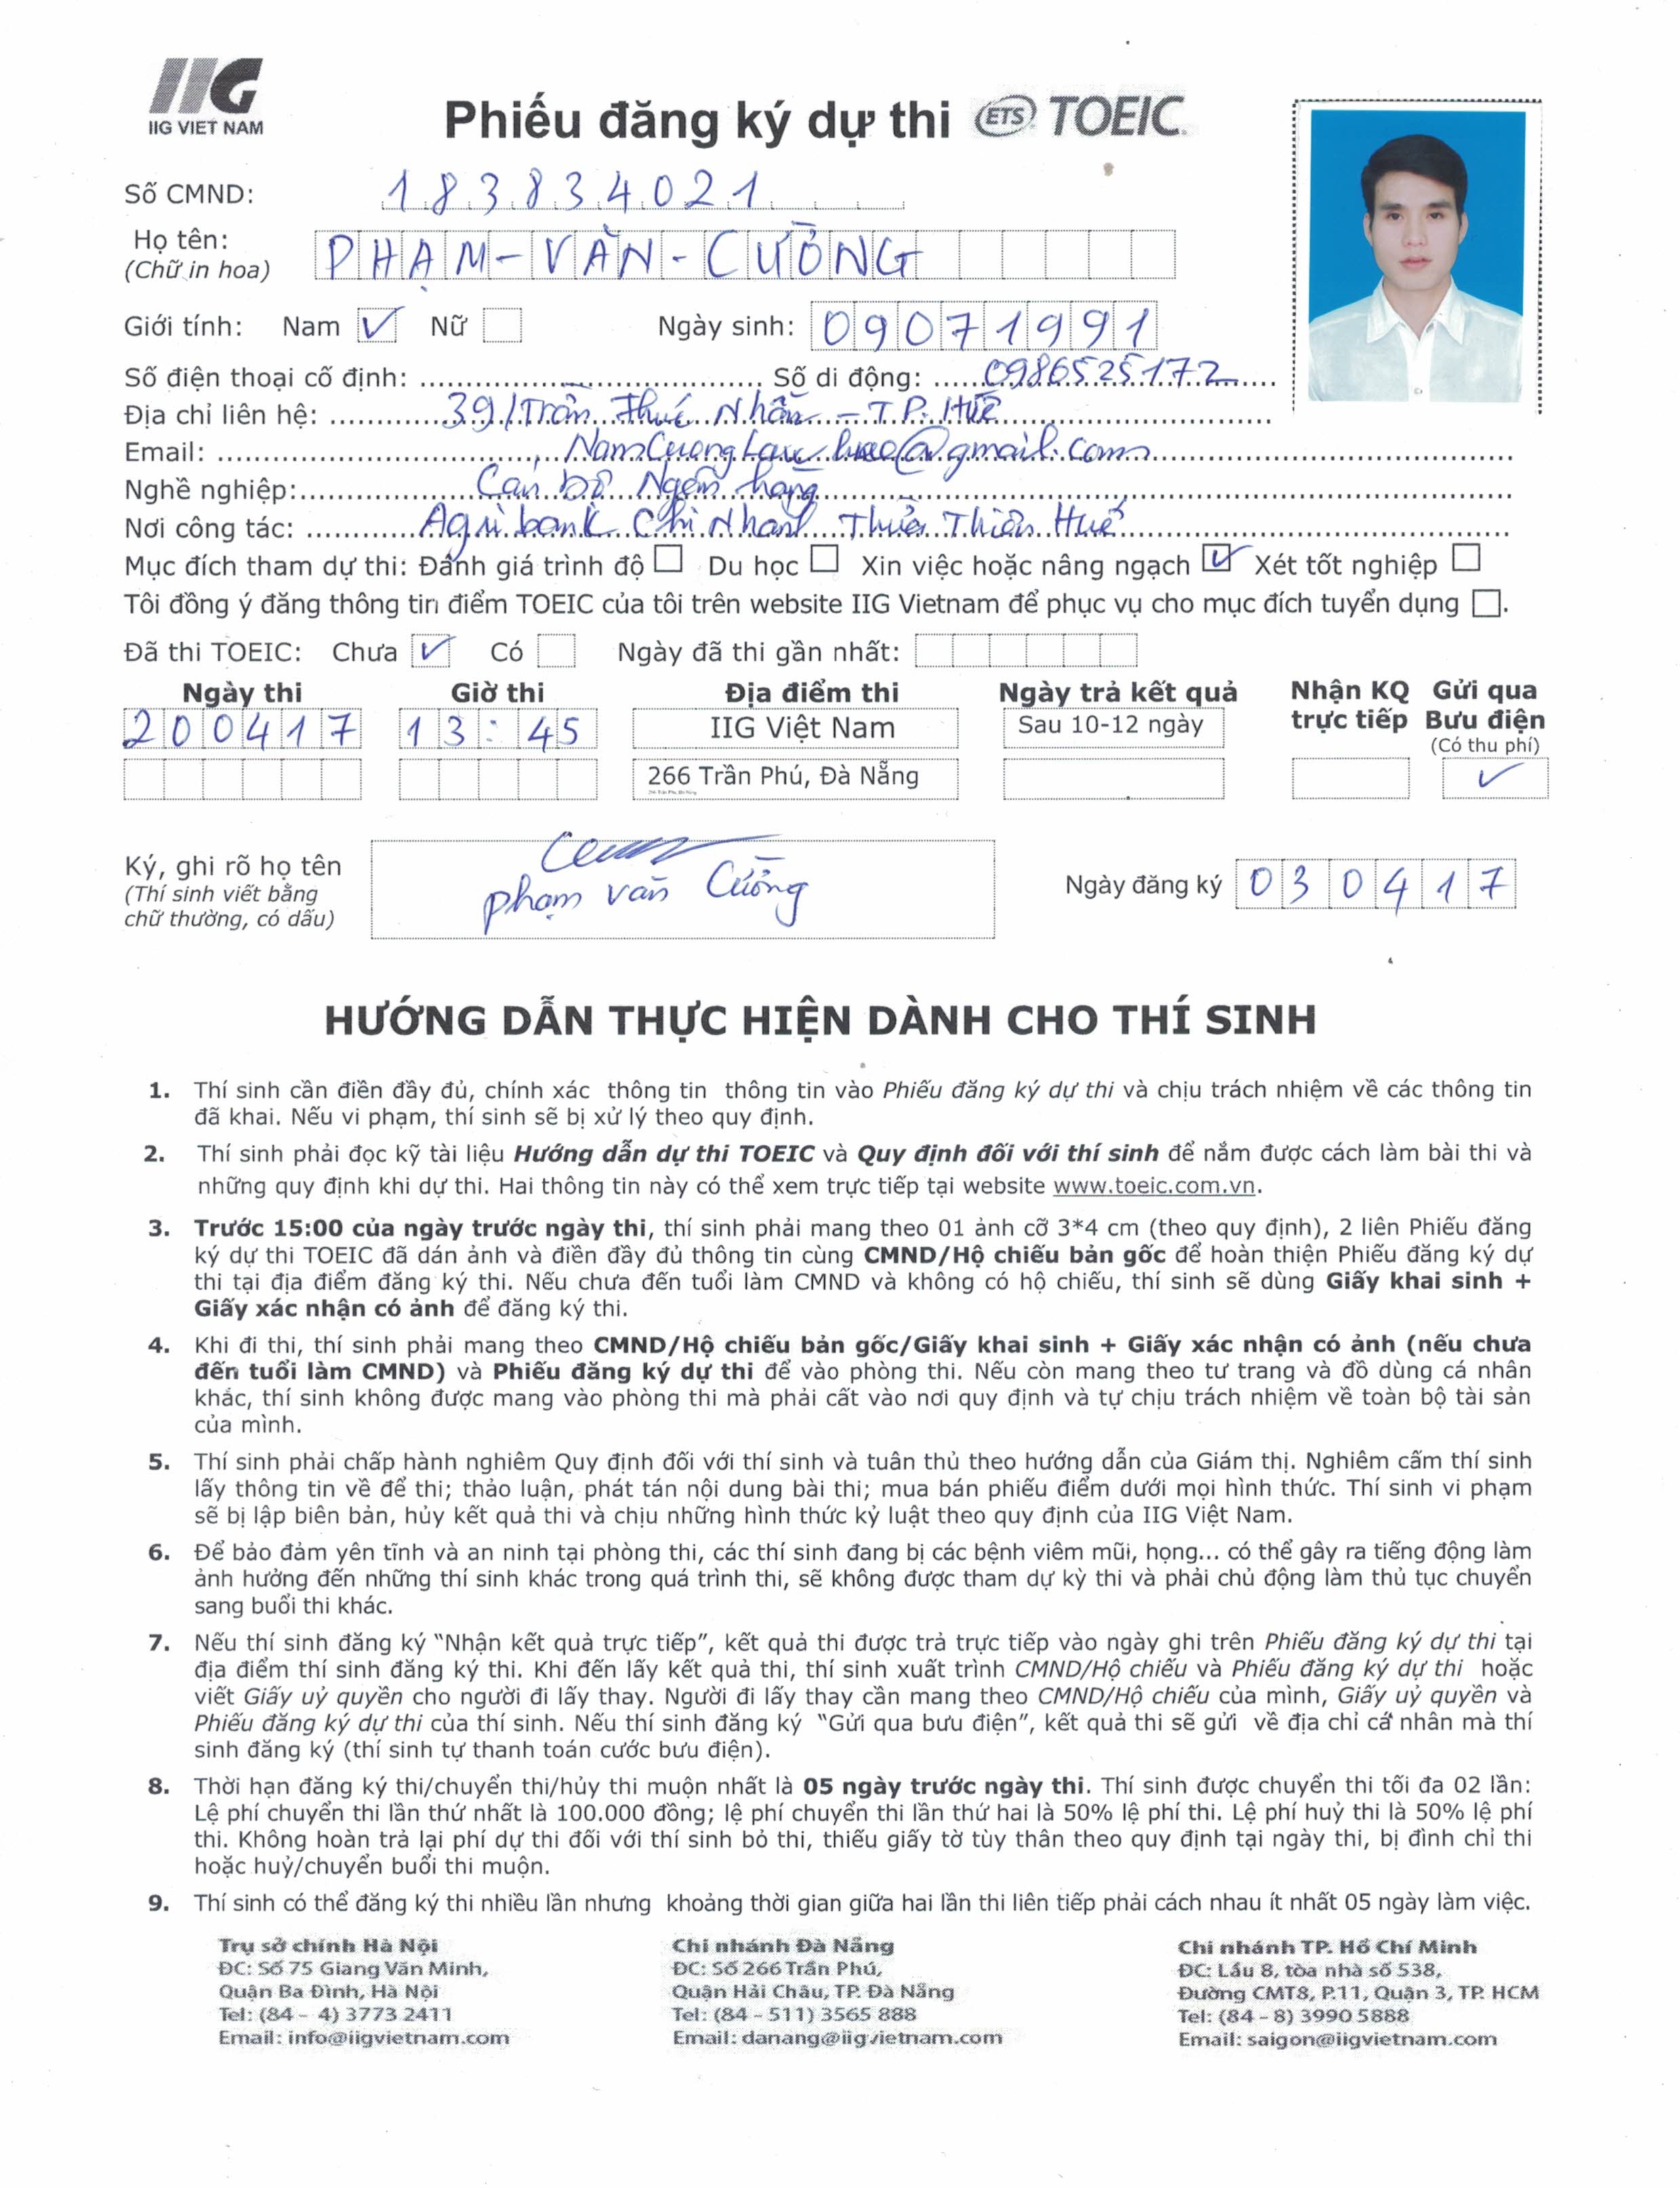 IIG
IIG VIET NAM
Phiếu đăng ký dự thi ETS TOEIC
Số CMND: 183834021
Họ tên: PHẠM-VĂN-CƯỜNG
(Chữ in hoa)
Giới tính: Nam ✓ Nữ Ngày sinh: 09071991
Số điện thoại cố định: Số di động: 0986525172
Địa chỉ liên hệ: 39/Trần Thúc Nhẫn - TP. Huế
Email: @gmail.com
Nghề nghiệp: Cán bộ Ngân hàng
Nơi công tác: Agribank Chi Nhánh Thừa Thiên Huế
Mục đích tham dự thi: Đánh giá trình độ Du học Xin việc hoặc nâng ngạch ✓ Xét tốt nghiệp
Tôi đồng ý đăng thông tin điểm TOEIC của tôi trên website IIG Vietnam để phục vụ cho mục đích tuyển dụng .
Đã thi TOEIC: Chưa ✓ Có Ngày đã thi gần nhất:
Ngày thi Giờ thi Địa điểm thi Ngày trả kết quả Nhận KQ trực tiếp Gửi qua Bưu điện
(Có thu phí)
200417 13:45 IIG Việt Nam Sau 10-12 ngày
266 Trần Phú, Đà Nẵng ✓
266 Trần Phú, Đà Nẵng
Ký, ghi rõ họ tên
(Thí sinh viết bằng
chữ thường, có dấu)
Phạm Văn Cường
Ngày đăng ký 030417
HƯỚNG DẪN THỰC HIỆN DÀNH CHO THÍ SINH
1. Thí sinh cần điền đầy đủ, chính xác thông tin thông tin vào Phiếu đăng ký dự thi và chịu trách nhiệm về các thông tin
đã khai. Nếu vi phạm, thí sinh sẽ bị xử lý theo quy định.
2. Thí sinh phải đọc kỹ tài liệu Hướng dẫn dự thi TOEIC và Quy định đối với thí sinh để nắm được cách làm bài thi và
những quy định khi dự thi. Hai thông tin này có thể xem trực tiếp tại website www.toeic.com.vn.
3. Trước 15:00 của ngày trước ngày thi, thí sinh phải mang theo 01 ảnh cỡ 3*4 cm (theo quy định), 2 liên Phiếu đăng
ký dự thi TOEIC đã dán ảnh và điền đầy đủ thông tin cùng CMND/Hộ chiếu bản gốc để hoàn thiện Phiếu đăng ký dự
thi tại địa điểm đăng ký thi. Nếu chưa đến tuổi làm CMND và không có hộ chiếu, thí sinh sẽ dùng Giấy khai sinh +
Giấy xác nhận có ảnh để đăng ký thi.
4. Khi đi thi, thí sinh phải mang theo CMND/Hộ chiếu bản gốc/Giấy khai sinh + Giấy xác nhận có ảnh (nếu chưa
đến tuổi làm CMND) và Phiếu đăng ký dự thi để vào phòng thi. Nếu còn mang theo tư trang và đồ dùng cá nhân
khác, thí sinh không được mang vào phòng thi mà phải cất vào nơi quy định và tự chịu trách nhiệm về toàn bộ tài sản
của mình.
5. Thí sinh phải chấp hành nghiêm Quy định đối với thí sinh và tuân thủ theo hướng dẫn của Giám thị. Nghiêm cấm thí sinh
lấy thông tin về để thi; thảo luận, phát tán nội dung bài thi; mua bán phiếu điểm dưới mọi hình thức. Thí sinh vi phạm
sẽ bị lập biên bản, hủy kết quả thi và chịu những hình thức kỷ luật theo quy định của IIG Việt Nam.
6. Để bảo đảm yên tĩnh và an ninh tại phòng thi, các thí sinh đang bị các bệnh viêm mũi, họng... có thể gây ra tiếng động làm
ảnh hưởng đến những thí sinh khác trong quá trình thi, sẽ không được tham dự kỳ thi và phải chủ động làm thủ tục chuyển
sang buổi thi khác.
7. Nếu thí sinh đăng ký “Nhận kết quả trực tiếp”, kết quả thi được trả trực tiếp vào ngày ghi trên Phiếu đăng ký dự thi tại
địa điểm thí sinh đăng ký thi. Khi đến lấy kết quả thi, thí sinh xuất trình CMND/Hộ chiếu và Phiếu đăng ký dự thi hoặc
viết Giấy uỷ quyền cho người đi lấy thay. Người đi lấy thay cần mang theo CMND/Hộ chiếu của mình, Giấy uỷ quyền và
Phiếu đăng ký dự thi của thí sinh. Nếu thí sinh đăng ký “Gửi qua bưu điện”, kết quả thi sẽ gửi về địa chỉ cá nhân mà thí
sinh đăng ký (thí sinh tự thanh toán cước bưu điện).
8. Thời hạn đăng ký thi/chuyển thi/hủy thi muộn nhất là 05 ngày trước ngày thi. Thí sinh được chuyển thi tối đa 02 lần:
Lệ phí chuyển thi lần thứ nhất là 100.000 đồng; lệ phí chuyển thi lần thứ hai là 50% lệ phí thi. Lệ phí huỷ thi là 50% lệ phí
thi. Không hoàn trả lại phí dự thi đối với thí sinh bỏ thi, thiếu giấy tờ tùy thân theo quy định tại ngày thi, bị đình chỉ thi
hoặc huỷ/chuyển buổi thi muộn.
9. Thí sinh có thể đăng ký thi nhiều lần nhưng khoảng thời gian giữa hai lần thi liên tiếp phải cách nhau ít nhất 05 ngày làm việc.
Trụ sở chính Hà Nội
ĐC: Số 75 Giang Văn Minh,
Quận Ba Đình, Hà Nội
Tel: (84 - 4) 3773 2411
Email: info@iigvietnam.com
Chi nhánh Đà Nẵng
ĐC: Số 266 Trần Phú,
Quận Hải Châu, TP. Đà Nẵng
Tel: (84 - 511) 3565 888
Email: danang@iigvietnam.com
Chi nhánh TP. Hồ Chí Minh
ĐC: Lầu 8, tòa nhà số 538,
Đường CMT8, P.11, Quận 3, TP. HCM
Tel: (84 - 8) 3990 5888
Email: saigon@iigvietnam.com